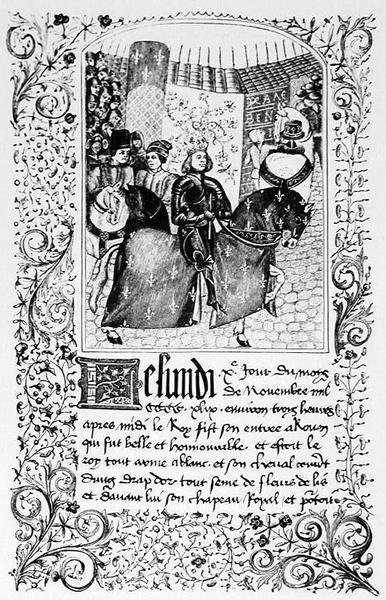 Le lundi xe Jour du moys
de Novembre mil
CCCC xlix environ trois heures
apres midi le Roy fist son entree a Rouen
qui fut belle et honnourable et estoit le
roy tout arme a blanc et son cheval couvert
dung drap dor tout seme de fleurs de lis
et davant lui son chapeau Royal et portoit